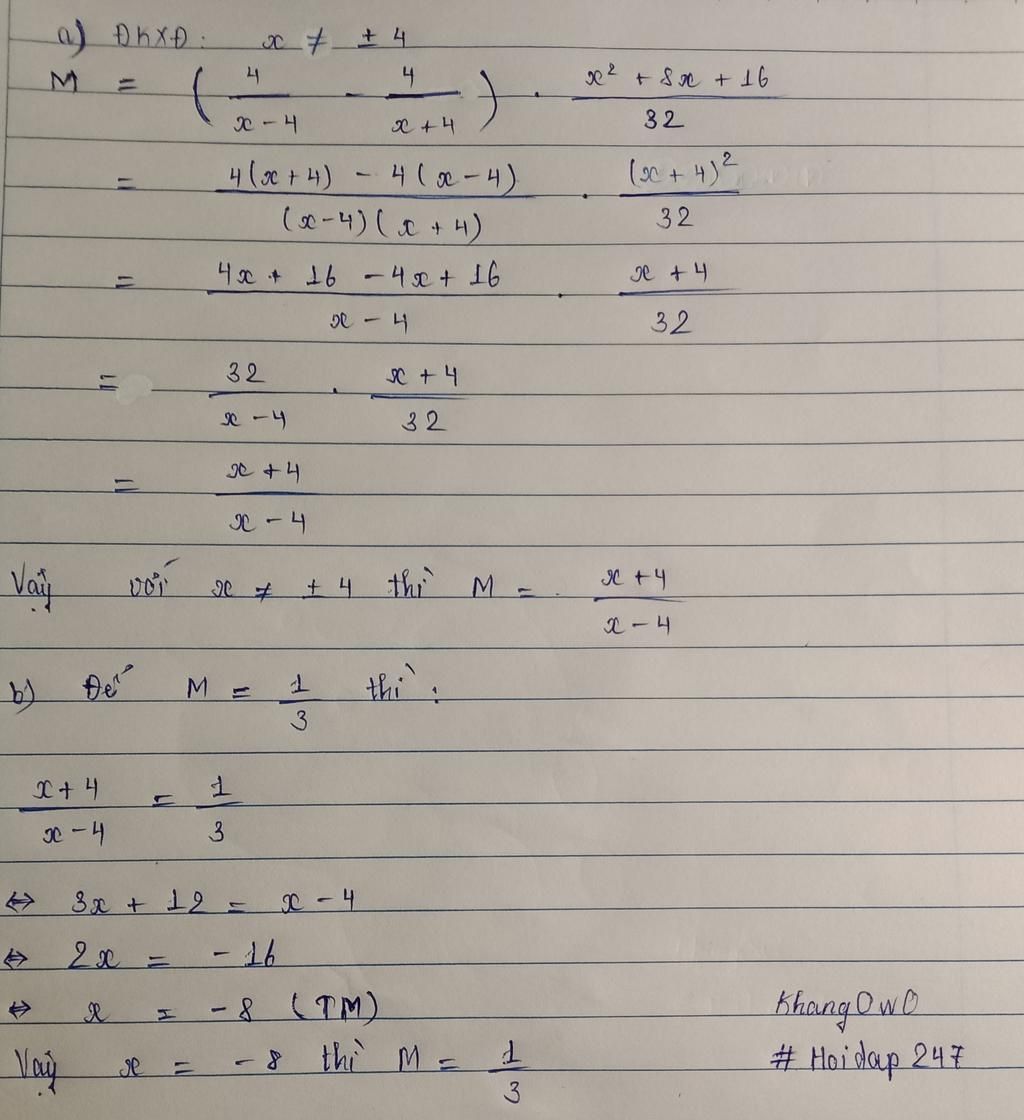 a) ĐKXĐ: x ≠ ± 4
M = ( 4/(x-4) - 4/(x+4) ) . (x² + 8x + 16)/32
= (4(x+4) - 4(x-4))/((x-4)(x+4)) . (x+4)²/32
= (4x + 16 - 4x + 16)/(x-4) . (x+4)/32
= 32/(x-4) . (x+4)/32
= (x+4)/(x-4)
Vậy với x ≠ ± 4 thì M = (x+4)/(x-4)
b) Để M = 1/3 thì :
(x+4)/(x-4) = 1/3
⇔ 3x + 12 = x - 4
⇔ 2x = - 16
⇔ x = - 8 (TM)
Vậy x = - 8 thì M = 1/3
KhangOwO
# Hoidap 247